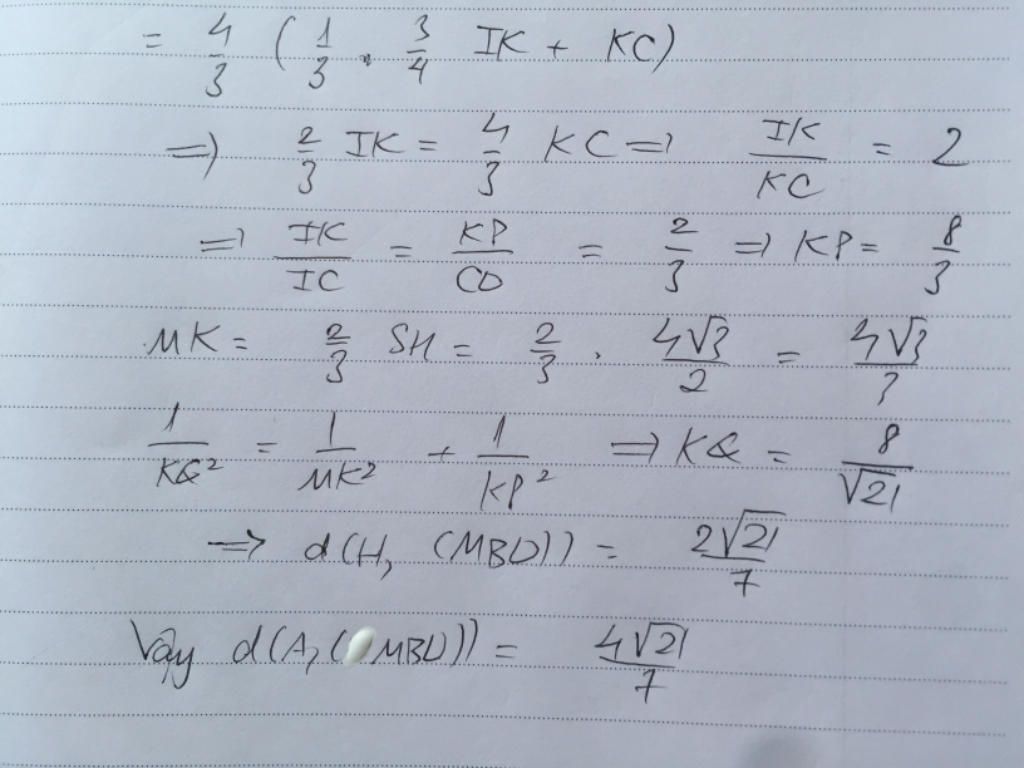 = 4/3 (1/3 . 3/4 IK + KC)
=> 2/3 IK = 4/3 KC => IK/KC = 2
=> IK/IC = KP/CO = 2/3 => KP = 8/3
MK = 2/3 SH = 2/3 . 4√3/2 = 4√3/3
1/KQ² = 1/MK² + 1/KP² => KQ = 8/√21
=> d(H, (MBD)) = 2√21/7
Vậy d(A, (MBD)) = 4√21/7